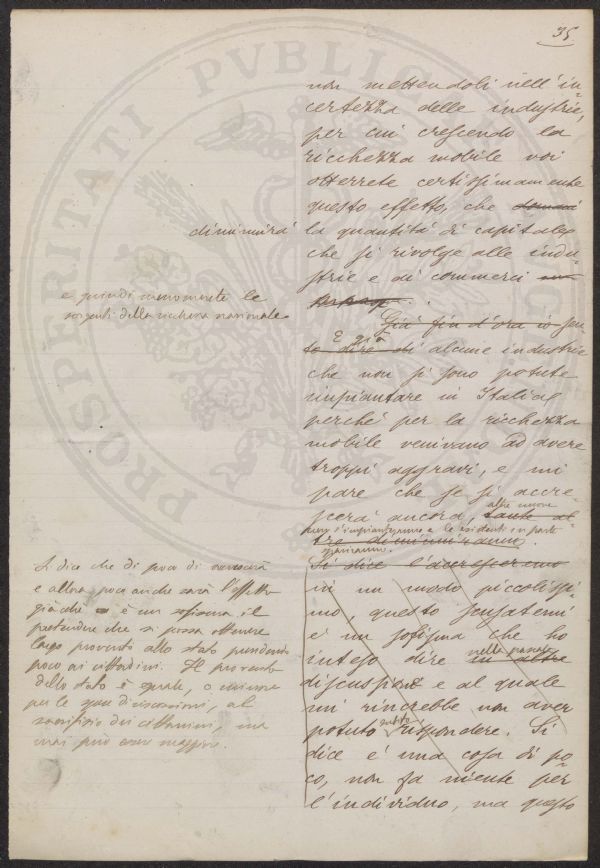 35
non mettendoli nell'in=
certezza delle industrie,
per cui crescendo la
ricchezza mobile voi
otterrete certissimamente
questo effetto, che
diminuirà
la quantità di capitale
che si rivolge alle indu=
strie e ai commerci
e quindi menomerete le
sorgenti della ricchezza nazionale
Già fin d'ora io sen
to dire di alcune industrie
E già
che non si sono potute
impiantare in Italia
perché per la ricchezza
mobile venivano ad avere
troppi aggravi, e mi
pare che se si accre=
scerà ancora tante al
altre nuove
tre diminuiranno.
non s'impianteranno e le esistenti in parte
Si dice l'accresceremo
in un modo piccolissi=
mo, questo scusatemi
è un sofisma che ho
inteso dire in altre
nelle passate
discussioni e al quale
mi rincrebbe non aver
potuto rispondere. Si
subito
dice è una cosa di po=
co, non fa niente per
l'individuo, ma questo
Si dice che di poco si
e allora poco anche sarà l'effetto
giacché è un sofisma il
pretendere che si possa ottenere
largo provento allo stato prendendo
poco ai cittadini. Il provento
dello stato è eguale, o minore
per le spese di riscossioni, al
sacrifizio dei cittadini, ma
mai può esser maggiore.
PROSPERITATI PVBLICAE